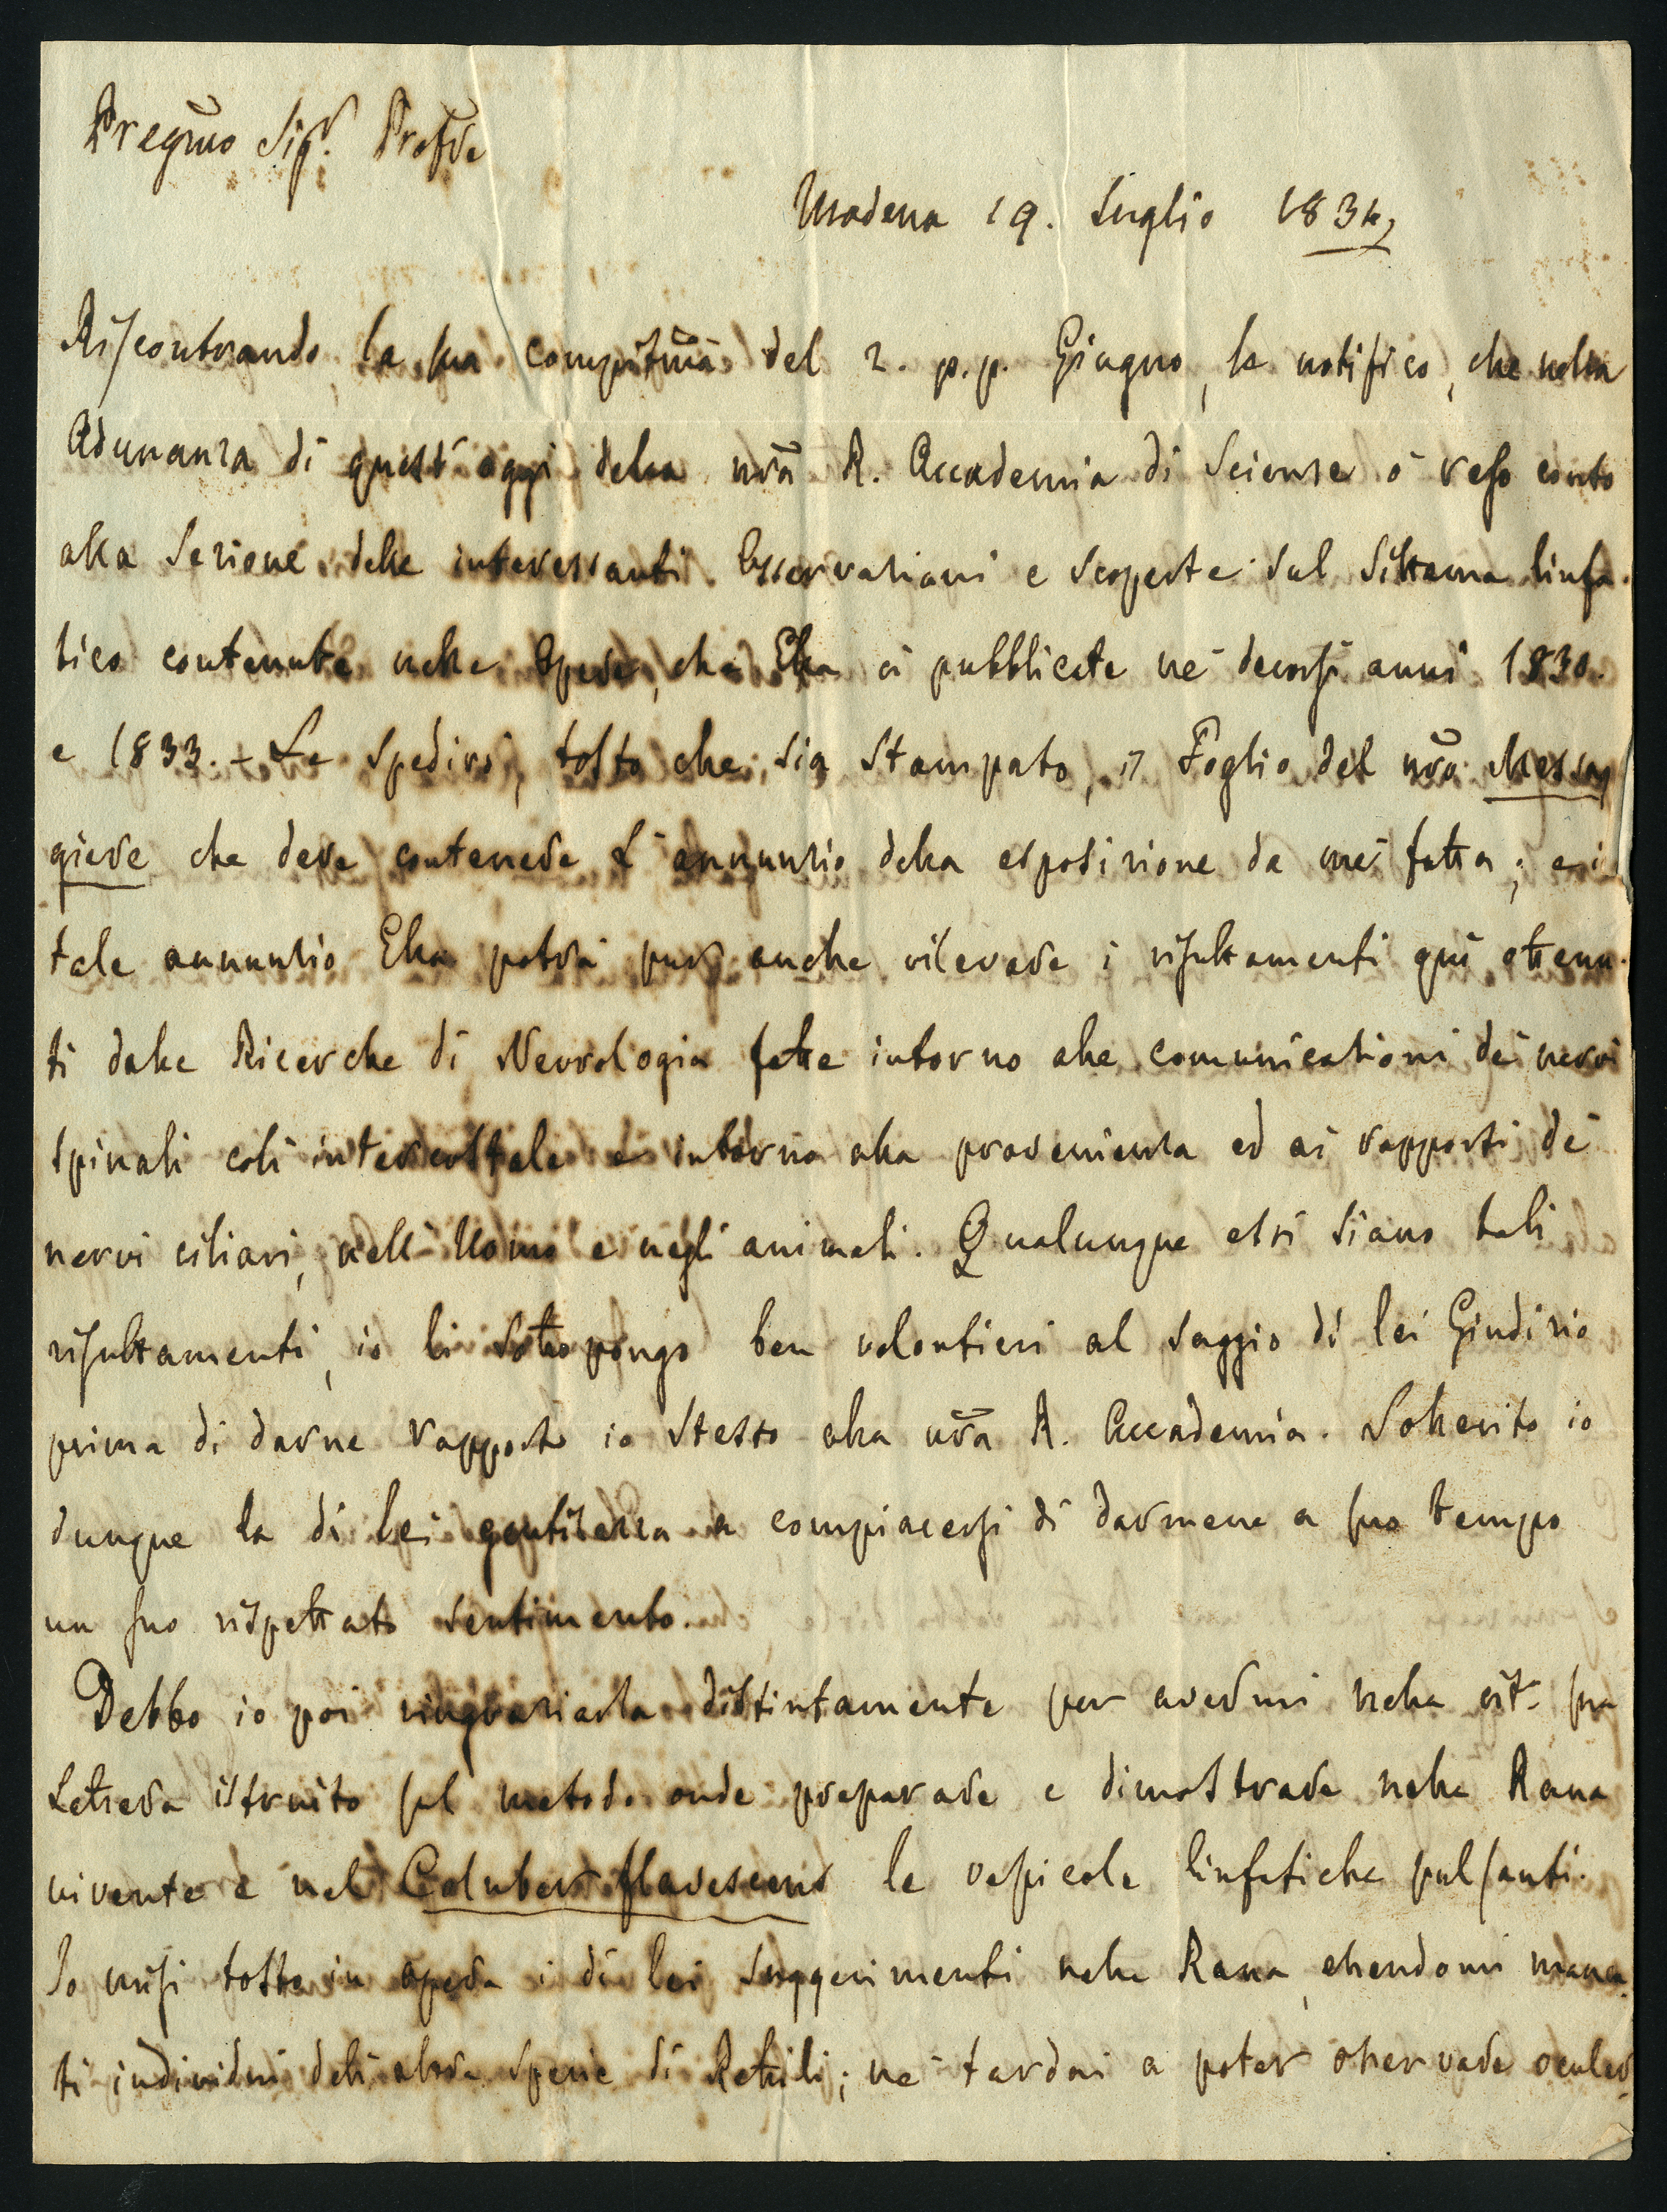 Pregmo Sigr. Profre
Modena 19. Luglio 1834
Riscontrando la sua compitma del 2. p.p. Giugno, le notifico, che nella
Adunanza di quest'oggi della nra R. Accademia di Scienze ò reso conto
alla Sezione delle interessanti Osservazioni e scoperte sul Sistema linfa-
tico contenute nelle Opere, che Ella à pubblicate ne' decorsi anni 1830.
e 1833. - Le spedirò, tosto che sia stampato, il Foglio del nro Messag
giere che deve contenere l'annunzio della esposizione da me fatta; e i
tale annunzio Ella potrà pur anche rilevare i risultamenti quì ottenu-
ti dalle Ricerche di Nevrologia fatte intorno alle comunicazioni dei nervi
spinali coll'intercostale e intorno alla provenienza ed ai rapporti de'
nervi ciliari, nell'Uomo e negli animali. Qualunque essi siano tali
risultamenti, io li sottopongo ben volontieri al saggio di lei Giudizio
prima di darne rapporto io stesso alla nra R. Accademia. Sollecito io
dunque la di lei gentilezza a compiacersi di darmene a suo tempo
un suo rispettato sentimento.
Debbo io poi ringraziarla distintamente per avermi nella cit. sua
Lettera istruito sul metodo onde preparare e dimostrare nella Rana
vivente e nel Coluber flavescens le vescicole linfatiche pulsanti.
Io misi tosto in opera i di lei suggerimenti nelle Rana, essendomi manca-
ti individui dell'altra specie di Rettili; nè tardai a poter osservare ocular-